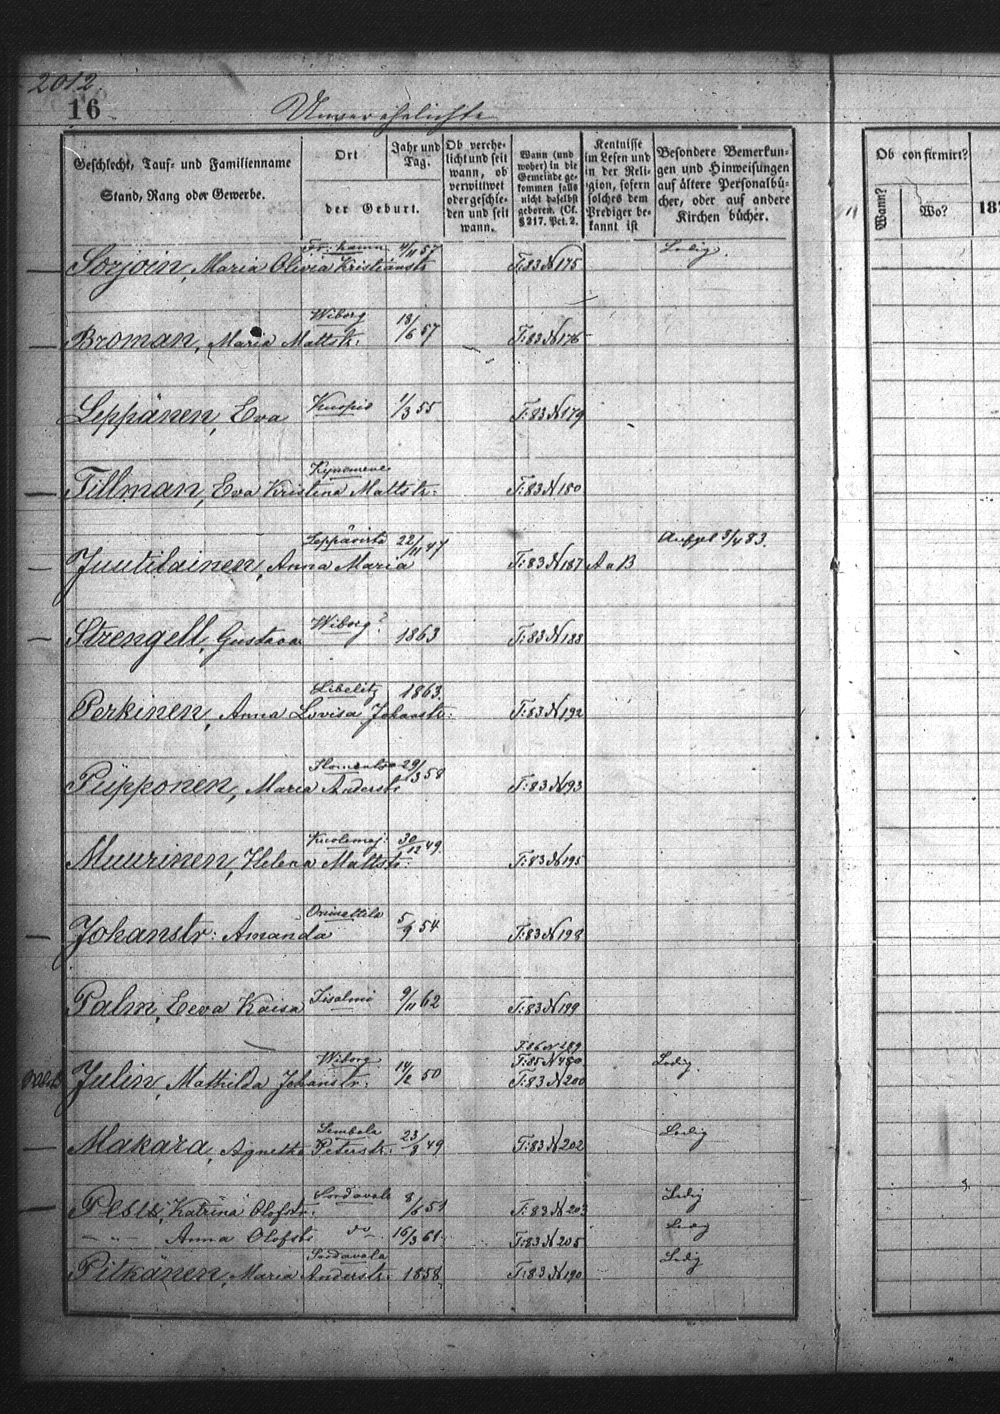 2012.
16
Unverehelichte
Geschlecht, Tauf- und Familienname
Stand, Rang oder Gewerbe.
Ort
der Geburt.
Jahr und
Tag.
Ob verehe-
licht und seit
wann, ob
verwitwet
oder geschie-
den und seit
wann.
Wann (und
woher) in die
Gemeinde ge-
kommen falls
nicht daselbst
geboren. (Cf.
§ 217. Pct. 2.
Kentnisse
im Lesen und
in der Reli-
gion, sofern
solches dem
Prediger be-
kannt ist
Besondere Bemerkun-
gen und Hinweisungen
auf ältere Personalbü-
cher, oder auf andere
Kirchen bücher.
Ob confirmirt?
Wann?
Wo?
187
4/11 57 Ledig.
Sorjoin, Maria Olivia Kristianstr T:83 N 175
Wiborg 18/6 57
Broman, Maria Mattstr. T:83 N 176
Kuopio 1/3 55
Leppänen, Eva T:83 N 179
Kymmene
Tillman, Eva Kristina Mattstr: T:83 N 180
Leppävirta 22/11 47 Aufgel 3/4 83.
Juutilainen, Anna Maria T:83 N 187 A a B
Wiborg? 1863
Strengell, Gustava T:83 N 188
Libelitz 1863.
Perkinen, Anna Lovisa Johanstr: T:83 N 192
Ilomantso 29/3 58
Piipponen, Maria Anderstr T:83 N 193
Kuolemaj: 30/12 49.
Muurinen, Helena Mattstr: T:83 N 195
Orimattila 5/9 54
Johanstr: Amanda T:83 N 198
Iisalmi 9/11 62
Palm, Eeva Kaisa T:83 N 199
T:86 N 289
Wiborg 14/2 50 T:85 N 480 Ledig.
Julin, Mathilda Johanstr: T:83 N 200
Sembola 23/3 49 Ledig
Makara, Agnetha Peterstr: T:83 N 202
Sordavala 8/6 51 Ledig
Katrina Olofstr. T:83 N 203
— " — Anna Olofstr do 16/3 61. T:83 N 205 Ledig
Sordavala Ledig
Pitkänen, Maria Anderstr: 1858. T:83 N 190